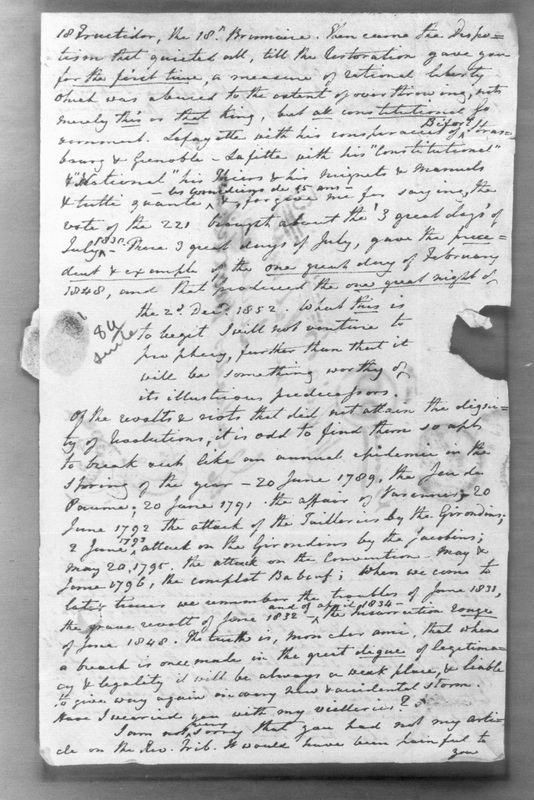 18 Fructidor, the 18th Brumaire. Then came the Despo=
tism that quieted all, till the Restoration gave you
for the first time, a measure of rational liberty
which was abused to the extent of overthrowing, not
merely this or that King, but all constitutional Go
vernment. Lafayette with his conspiracies of Béfort, Stras=
bourg & Grenoble - Lafitte with his "Constitutional"
& "National" his Thiers & his Mignets & Manuels
- les comédiens de 15 ans -
& tutti quanti, & forgive me for saying, the
vote of the 221 brought about the "3 great days of
July 1830". These 3 great days of July, gave the prece=
dent & example of the one great day of February
1848, and that produced the one great night of
the 2d Decr 1852. What this is
to beget I will not venture to
prophecy, further than that it
will be something worthy of
its illustrious predecessors.
84
suite
Of the revolts & riots that did not attain the digni=
ty of Revolutions, it is odd to find them so apt
to break out like an annual epidemic in the
spring of the year - 20 June 1789, the Jeu de
Paume; 20 June 1791. the affair of Varennes; 20
June 1792 the attack of the Tuilleries by the Girondins;
2 June 1793 attack on the Girondins by the Jacobins;
May 20, 1795. the attack on the Convention - May &
June 1796, the complot Babeuf; When we come to
later times we remember the troubles of June 1831,
and of April 1834 -
the grave revolt of June 1832 - the Insurrection rouge
of June 1848. The truth is, mon cher ami, that when
a breach is once made in the great digue of legitima=
cy & legality it will be always a weak place, & liable
to give way again in every new & accidental storm.
Have I wearied you with my vielleries?
I am not sorry that you had not my arti=
cle on the Rev. Trib. It would have been painful to
you